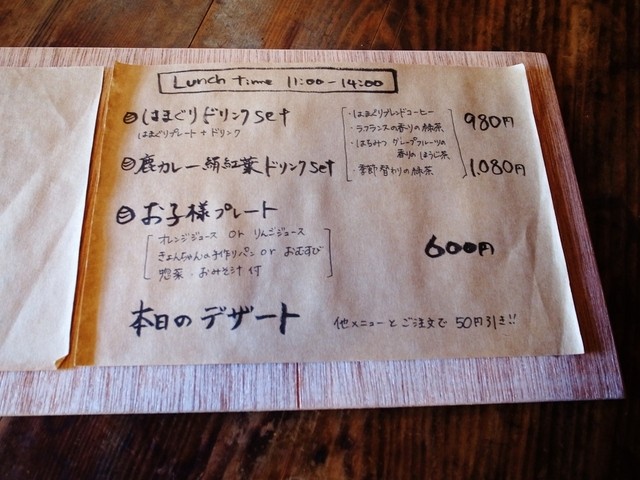 Lunch time 11:00-14:00
はまぐりドリンクset 980円
はまぐりプレート+ドリンク
・はまぐりブレンドコーヒー
・ラフランスの香りの緑茶
・はちみつ グレープフルーツの
香りのほうじ茶
・季節替わりの緑茶
鹿カレー絹紅葉ドリンクset 1,080円
お子様プレート 600円
オレンジジュース or りんごジュース
きょんちゃんの手作りパン or おむすび
惣菜・おみそ汁付
本日のデザート 他メニューとご注文で 50円引き!!